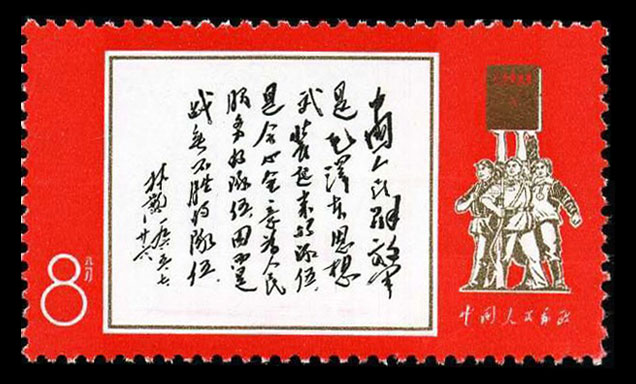 中國人民解放军
是毛澤东思想
武装起来的队伍，
是全心全意为人民
服务的队伍，因而是
战無不胜的队伍。
林彪 一九六五、七、
廿六
8
中国人民邮政